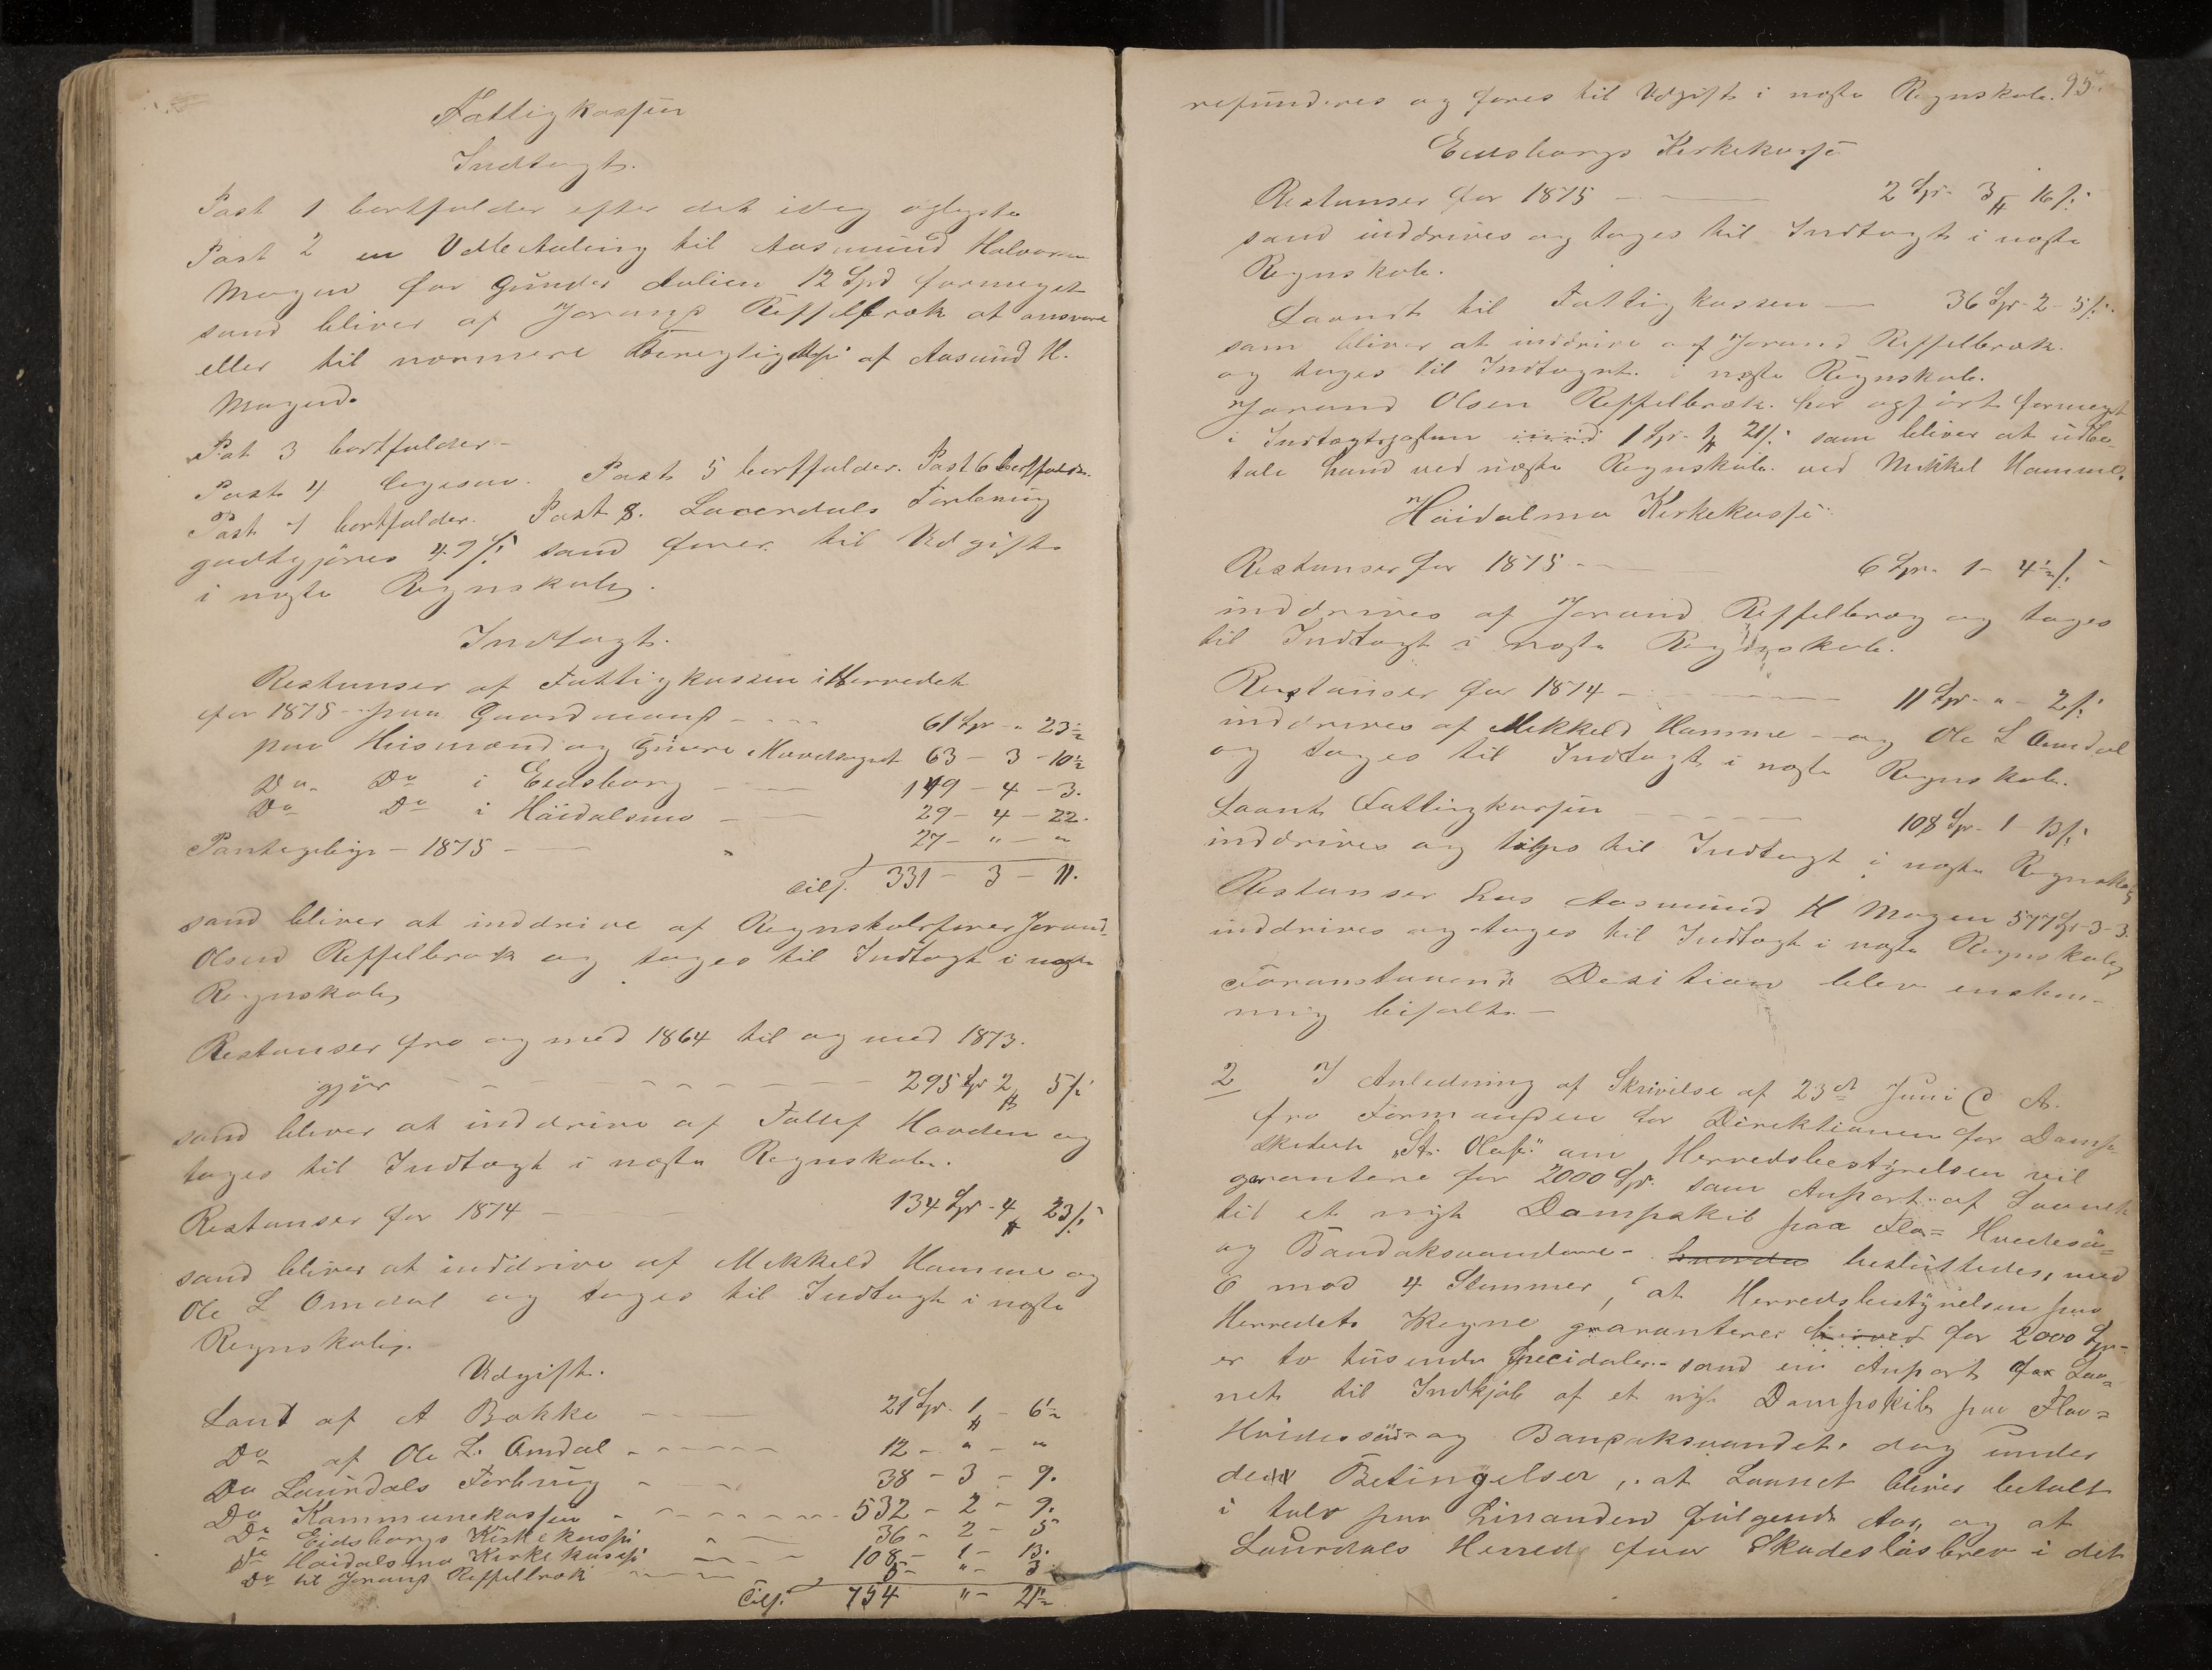 Fattigkassen
Indtægt.
Post 1 bortfalder efter det idag oplyste
Post 2 en Udbetaling til Aasmund Halvorsen
Mogen for Gunder Aalien 12 Spd formeget
som bliver af Jorand Reffelbræk at ansvare
eller til nærmere Beregtigelse af Aasund H.
Mogen.
Post 3 bortfalder
Post 4 ligesaa. Post 5 bortfalder. Post 6 bortfalder.
Post 7 bortfalder. Post 8. Laurdals Forbening
godtgjøres 49 /: som fører til Udgift
i næste Regnskab.
Indtægt.
Restanser af Fattigkassen i Herredet
for 1875 paa Gaardmand - - - 61 Spr " 23½
paa Husmænd og Givere Hovedsognet 63 - 3 - 10½
Do Do i Eidsborg - 149 - 4 - 3.
Do Do i Høidalsmo - 29 - 4 - 22.
Pantegebyr - 1875 - 27 - " - "
Tils. 331 - 3 - 11.
som bliver at inddrive af Regnskabsfører Jorand
Olsen Reffelbræk og tages til Indtægt i næste
Regnskab
Restanser fra og med 1864 til og med 1873.
gjør - - - 295 Spr 2 # 5 /:
som bliver at inddrive af Tallef Hovden og
tages til Indtægt i næste Regnskab.
Restanser for 1874 - 134 Spr - 4 # 23 /:
som bliver at inddrive af Mekkeld Hamme og
Ole L Omdal og tages til Indtægt i næste
Regnskab.
Udgift.
Lant af A Bakke - 21 Spr. 1 # - 6½
Do af Ole L. Omdal - - - 12 - " - "
Do Laurdals Forbrug - 38 - 3 - 9.
Do Kammunekassen - - - 532 - 2 - 9.
Do Eidsborgs Kirkekasse - 36 - 2 - 5
Do Høidalsmo Kirkekasse - 108 - 1 - 13.
Do til Jorand Reffelbræk - 5 - " - 3
Tils. 754 " - 21½
95.
refunderes og føres til Udgift i næste Regnskab.
Eidsborgs Kirkekasse
Restanser for 1875 - 2 Spr. 3 # 16 /:
som inddrives og tages til Indtægt i næste
Regnskab.
Laant til Fattigkassen - 36 Spr - 2 - 5 /:
som bliver at inddrive af Jorand Reffelbræk.
og tages til Indtægt i næste Regnskab.
Jorand Olsen Reffelbræk har opført formeget
i Indtægtsposten 1 Spr - 1 # 21 /: som bliver at udbe-
tale ham ved næste Regnskab ved Mikkel Hamme.
Høidalmo Kirkekasse
Restanser for 1875 - - 6 Spr. 1 - 4½ /:
inddrives af Jorand Reffelbræg og tages
til Indtægt i næste Regnskab.
Restanser for 1874 - 11 Spr - " - 2 /:
inddrives af Mekkeld Hamme - og Ole L Omdal
og tages til Indtægt i næste Regnskab.
Laant Fattigkassen - - - 108 Spr - 1 - 13 /:
inddrives og tages til Indtægt i næste Regnskab
Restanser hos Aasmund H Mogen 577 Spr - 3 - 3.
inddrives og tages til Indtægt i næste Regnskab
Foranstaaende Desition blev enstem-
mig bifalt. -
2 I Anledning af Skrivelse af 23de Juni C A.
fra Formanden for Direktionen for Damp-
skibet "St. Olaf" om Herredsbestyrelsen vil
garantere for 2000 Spr. som Anpart af Laanet
til et nyt Dampskib paa Flaa= Hvedesø=
og Bandaksvandene - besluttedes, med
6 mod 4 Stemmer, at Herredsbestyrelsen paa
Herredets Vegne garanterer for 2000 Spr.
er to tusende Specidaler - som en Anpart for Laa=
net til Indkjøb af et nyt Dampskib paa Flaa=
Hvidesøs- og Bandaksvandet. dog under
den Betingelser, at Laanet bliver betalt
i tolv paa hinanden følgende Aar, og at
Laurdals Herred faar Skadesløsbrev i det